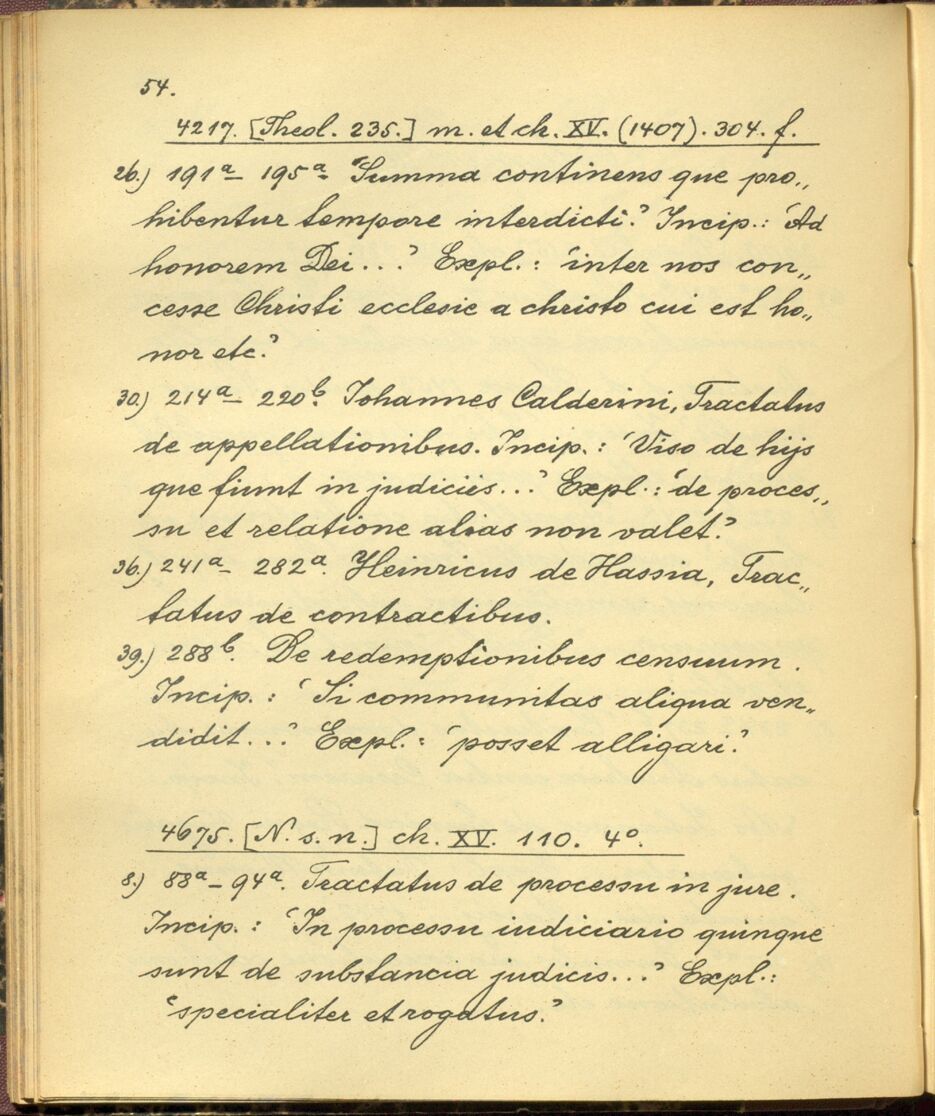 54.
4217. [Theol. 235.] m. et ch. XV. (1407). 304. f.
26.) 191a - 195a. 'Summa continens que pro„
hibentur tempore interdicti.' Incip.: 'Ad
honorem Dei...' Expl.: 'inter nos con„
cesse Christi ecclesie a christo cui est ho„
nor etc.'
30.) 214a - 220b. Johannes Calderini, Tractatus
de appellationibus. Incip.: 'Viso de hijs
que fiunt in judiciis...' Expl.: 'de proces„
su et relatione alias non valet.'
36.) 241a - 282a. Heinricus de Hassia, Trac„
tatus de contractibus.
39.) 288b. De redemptionibus censuum.
Incip.: 'Si communitas aliqua ven„
didit...' Expl.: 'posset alligari.'
4675. [N. s. n.] ch. XV. 110. 4o.
8.) 88a - 94a. Tractatus de processu in jure.
Incip.: 'In processu iudiciario quinque
sunt de substancia judicis...' Expl.:
'specialiter et rogatus.'